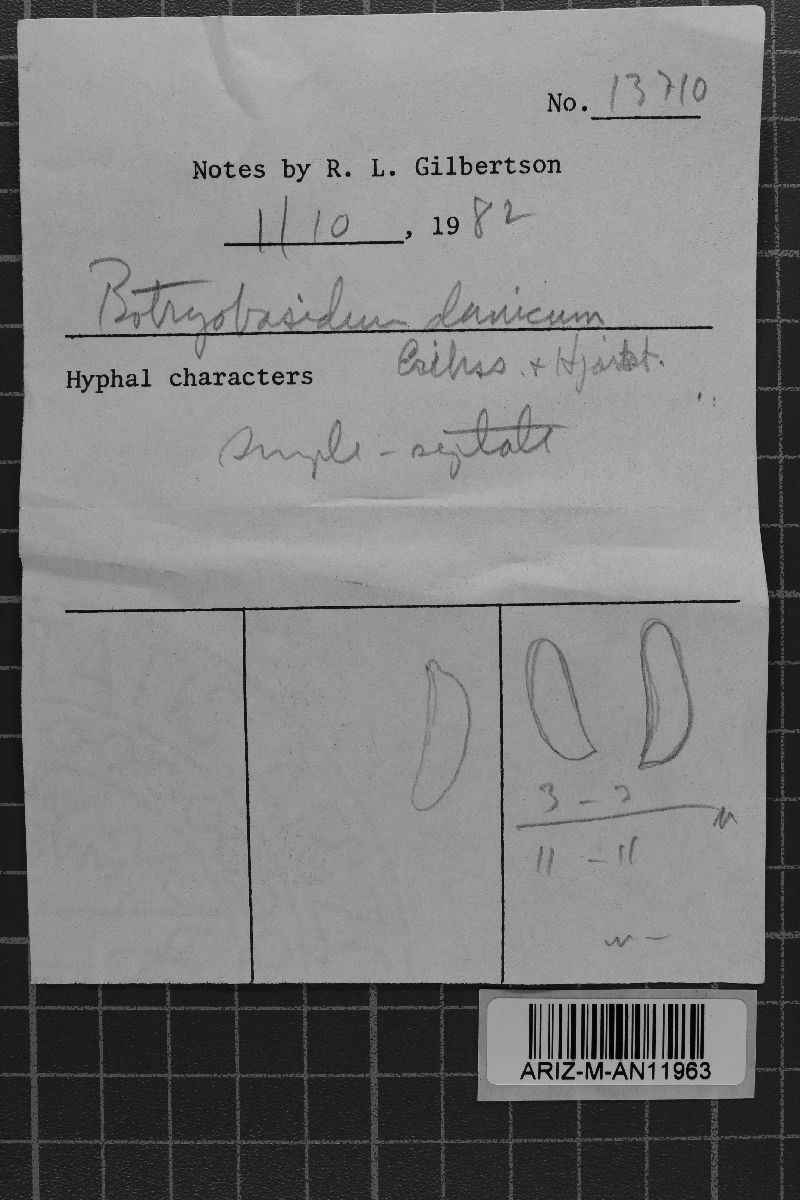 No. 13710
Notes by R. L. Gilbertson
1/10, 1982
Botryobasidium danicum
Erikss. + Hjortst.
Hyphal characters
simple-septate
3 -
11 - 11
ARIZ-M-AN11963